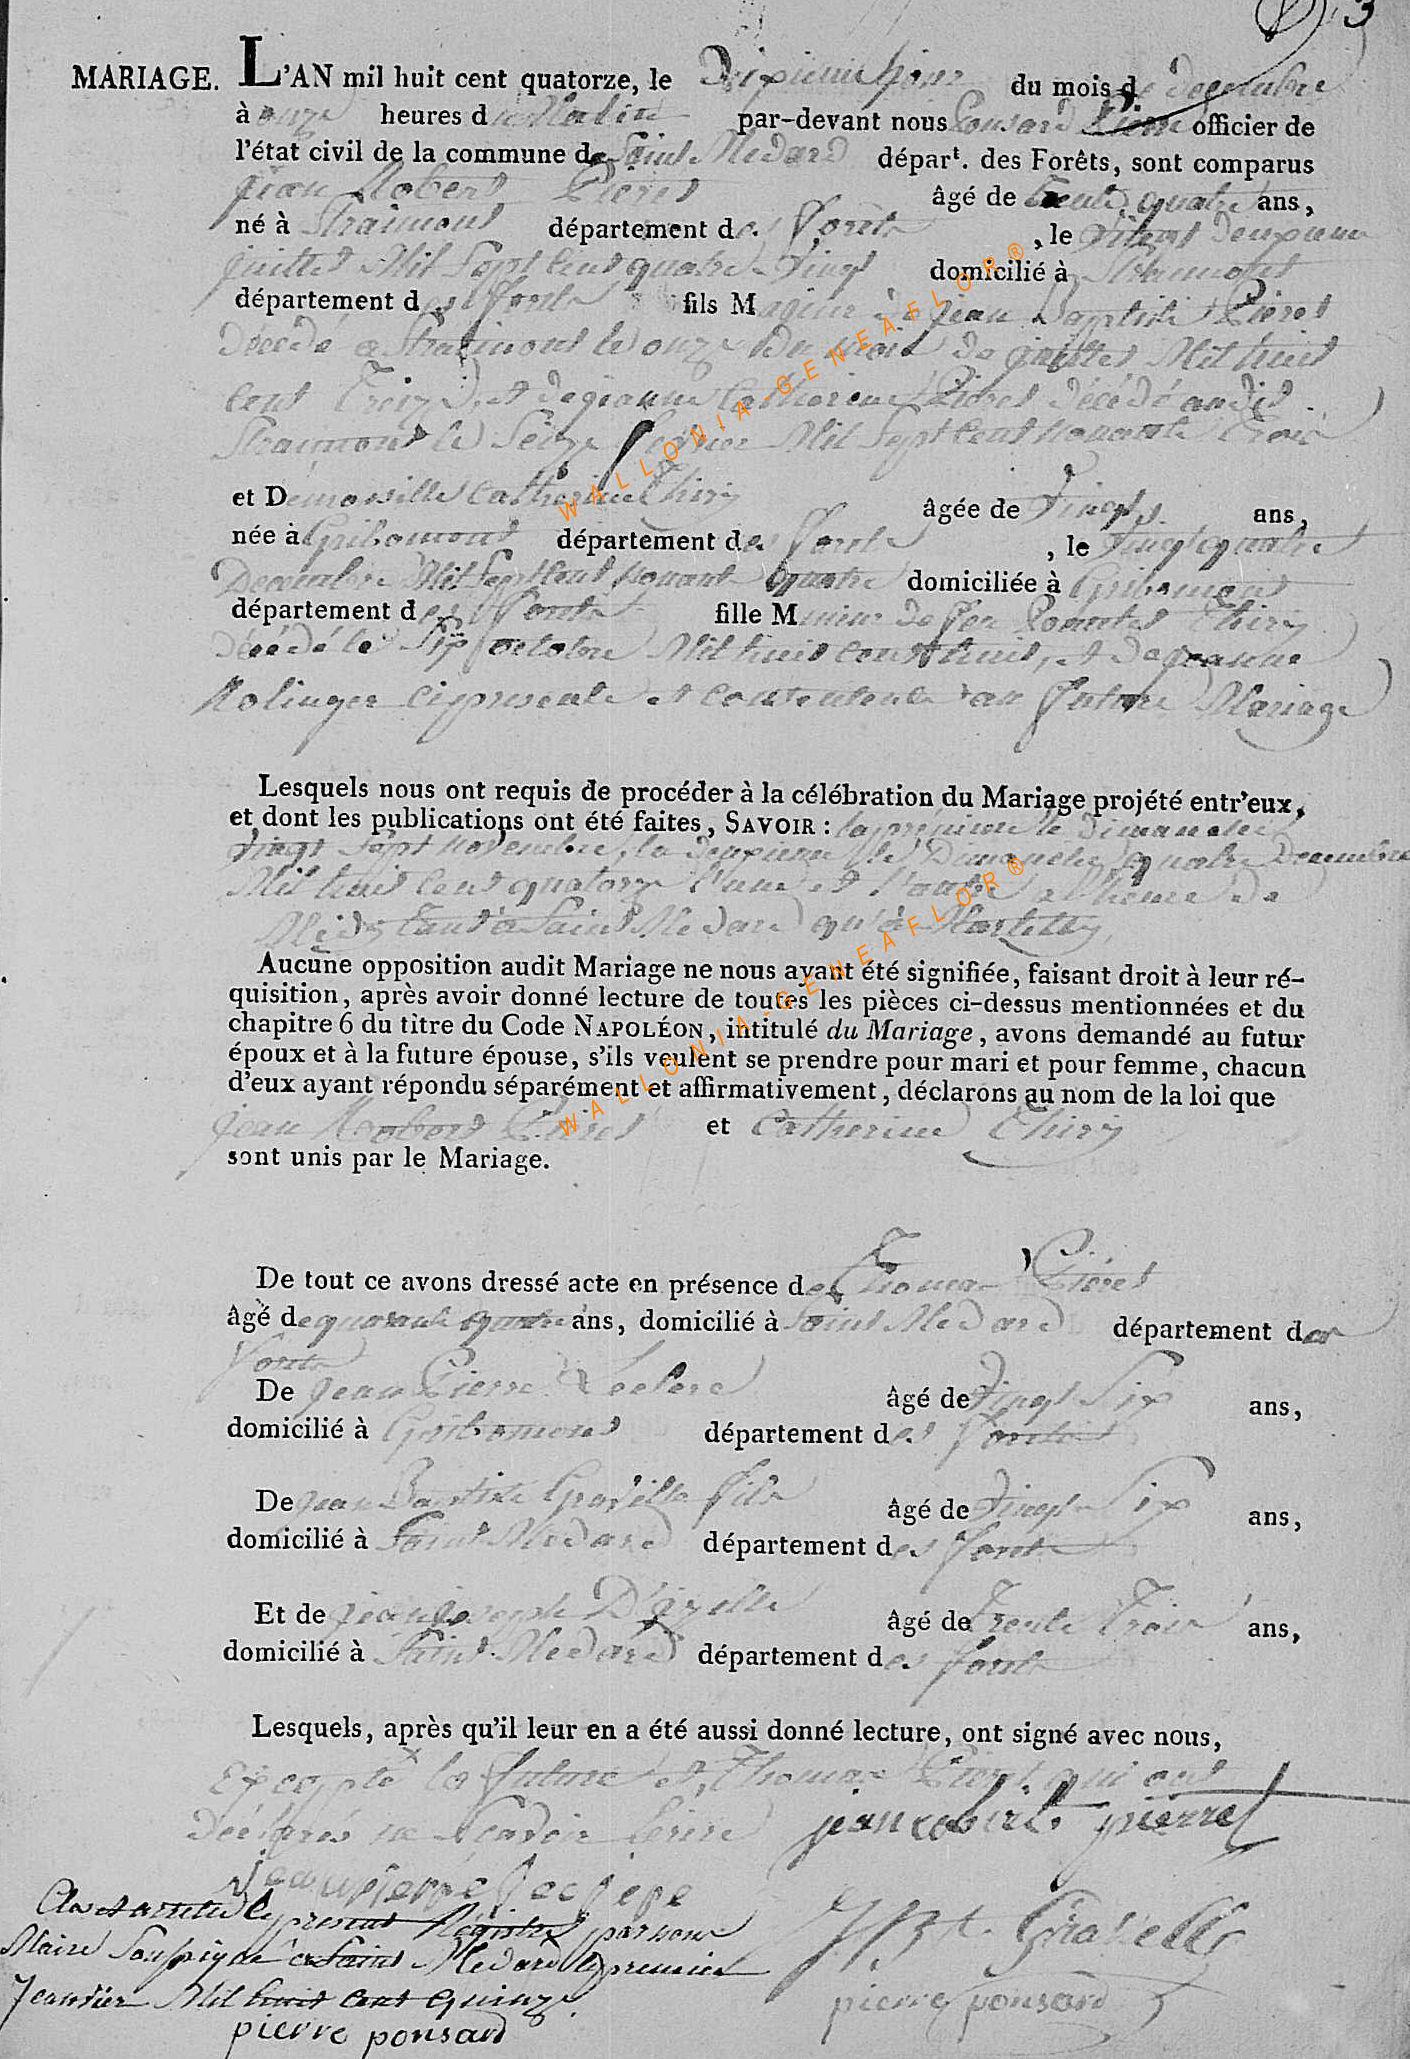 3
MARIAGE. L'AN mil huit cent quatorze, le Dixieme jour du mois de Decembre
à onze heures du Matin par-devant nous Ponsard Pierre officier de
l'état civil de la commune de Saint Medard départ. des Forêts, sont comparus
jean Robert Pierret âgé de trente quatre ans,
né à Straimont département des forets, le Vingt Deuxieme
juillet Mil Sept Cent quatre Vingt domicilié à Straimont
département des forets fils Majeur de jean Baptiste Pierret
décédé a Straimont le onze du Mois de juillet Mil huit
Cent Treize et de jeanne Catherine Pierret décédé audit
Straimont le Seize fevrier Mil Sept Cent nonante Trois
et Demoiselle Catherine Thiry âgée de Vingt ans,
née à Gribomont département des forets, le Vingt quatre
Decembre Mil Sept Cent nonante quatre domiciliée à Gribomont
département des forets fille Mineur de feu Thiry
décédé le Six octobre Mil huit cent huit, et de jeanne
Nolinger ci presente et Consentente au futur Mariage
Lesquels nous ont requis de procéder à la célébration du Mariage projété entr'eux,
et dont les publications ont été faites, SAVOIR : la premiere le Dimanche
Vingt Sept Novembre, la deuxieme le Dimanche quatre Decembre
Mil huit Cent quatorze l'une et l'autre a l'heure de
Midi tant a Saint Medard qu'a
Aucune opposition audit Mariage ne nous ayant été signifiée, faisant droit à leur ré-
quisition, après avoir donné lecture de toutes les pièces ci-dessus mentionnées et du
chapitre 6 du titre du Code NAPOLÉON, intitulé du Mariage, avons demandé au futur
époux et à la future épouse, s'ils veulent se prendre pour mari et pour femme, chacun
d'eux ayant répondu séparément et affirmativement, déclarons au nom de la loi que
jean Robert Pierret et Catherine Thiry
sont unis par le Mariage.
De tout ce avons dressé acte en présence de Thomas Pierret
âgé de quarante quatre ans, domicilié à Saint Medard département des
forets
De jean Pierre Leclere âgé de Vingt Six ans,
domicilié à Gribomont département des forets
De jean Baptiste Gravelle fils âgé de Vingt Six ans,
domicilié à Saint Medard département des forets
Et de jean joseph Dazelle âgé de Trente Trois ans,
domicilié à Saint Medard département des forets
Lesquels, après qu'il leur en a été aussi donné lecture, ont signé avec nous,
Excepté la future et Thomas Pierret qui ont
Déclarés ne Scavoir Ecrire jean robert pierret
jean pierre
Clos et arretté le present Registre par nous J Bt. Gravelle
Maire Soussigné a Saint Medard le premier
Jeanvier Mil huit cent quinze pierre ponsard
pierre ponsard
WALLONIA-GENEAFLOR®
WALLONIA-GENEAFLOR®